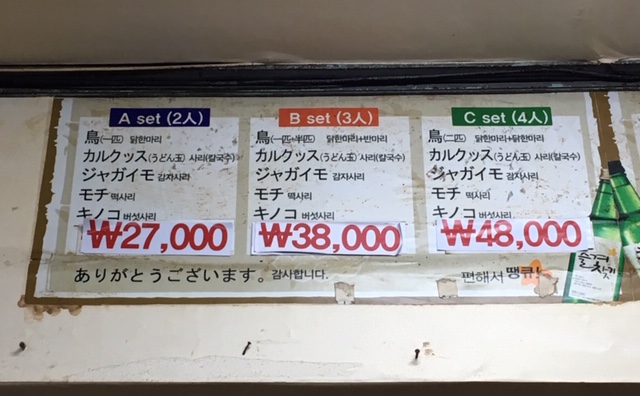 A set (2人)
鳥(一匹) 닭한마리
カルクッス(うどん玉) 사리(칼국수)
ジャガイモ 감자사리
モチ 떡사리
キノコ 버섯사리
₩27,000
B set (3人)
鳥(一匹+半匹) 닭한마리+반마리
カルクッス(うどん玉) 사리(칼국수)
ジャガイモ 감자사리
モチ 떡사리
キノコ 버섯사리
₩38,000
C set (4人)
鳥(二匹) 닭한마리+닭한마리
カルクッス(うどん玉) 사리(칼국수)
ジャガイモ 감자사리
モチ 떡사리
キノコ 버섯사리
₩48,000
ありがとうございます。감사합니다.
편해서 땡큐!